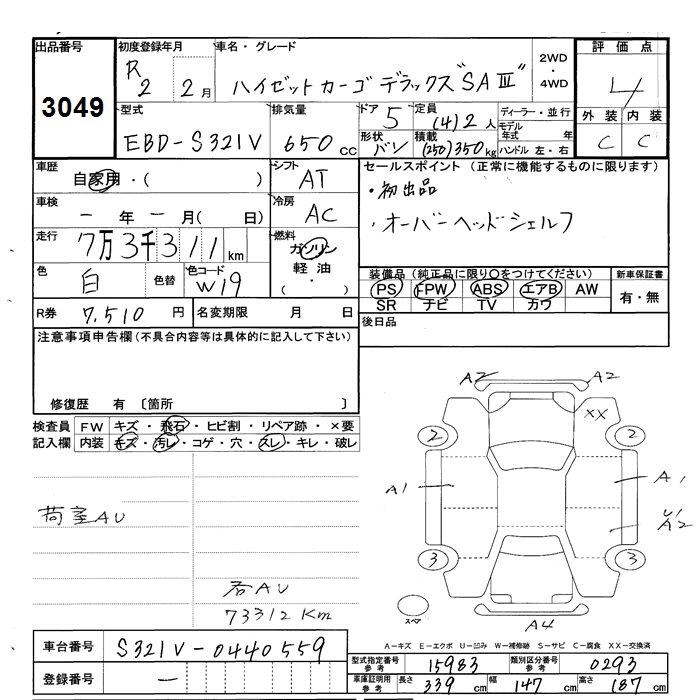 出品番号 3049
初度登録年月 R2 2月
車名・グレード ハイゼットカーゴ デラックス"SAⅢ"
2WD・4WD
評価点 4
外装 C 内装 C
型式 EBD-S321V
排気量 650cc
ドア 5
形状 バン
定員 (4)2人
積載 (250)350kg
ディーラー・並行
モデル年式 年
ハンドル 左・右
車歴 自家用・( )
シフト AT
車検 ー年ー月( 日)
冷房 AC
走行 7万3千311km
燃料 ガソリン
軽油
( ・ )
色 白 色替
色コード W19
R券 7,510円
名変期限 月 日
セールスポイント(正常に機能するものに限ります)
・初出品
・オーバーヘッドシェルフ
装備品(純正品に限り○をつけてください)
PS FPW ABS エアB AW
SR ナビ TV カワ
新車保証書
有・無
後日品
注意事項申告欄(不具合内容等は具体的に記入して下さい)
修復歴 有 〔箇所 〕
検査員記入欄
FW キズ・飛石・ヒビ割・リペア跡・×要
内装 キズ・汚レ・コゲ・穴・スレ・キレ・破レ
荷室AU
73312Km
A2 A2
XX
2 2
A1 A1
U1
A2
3 3
スペア
A4
A-キズ E-エクボ U-凹み W-補修跡 S-サビ C-腐食 XX-交換済
車台番号 S321V-0440559
登録番号 ー
型式指定番号参考 15983
類別区分番号参考 0293
車庫証明用参考 長さ 339cm 幅 147cm 高さ 187cm